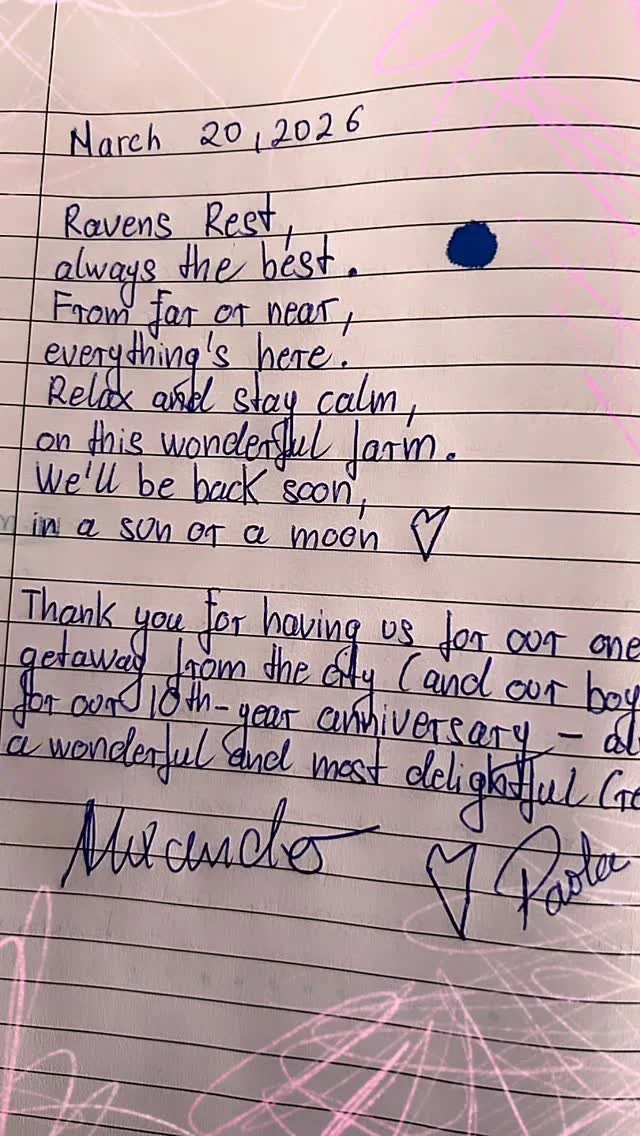 March 20, 2026
Ravens Rest,
always the best.
From far or near,
everything's here.
Relax and stay calm,
on this wonderful farm.
We'll be back soon,
in a son or a moon
Thank you for having us for our one
getaway from the city (and our boy
for our 10th-year anniversary - al
a wonderful and most delightful (re
Paola